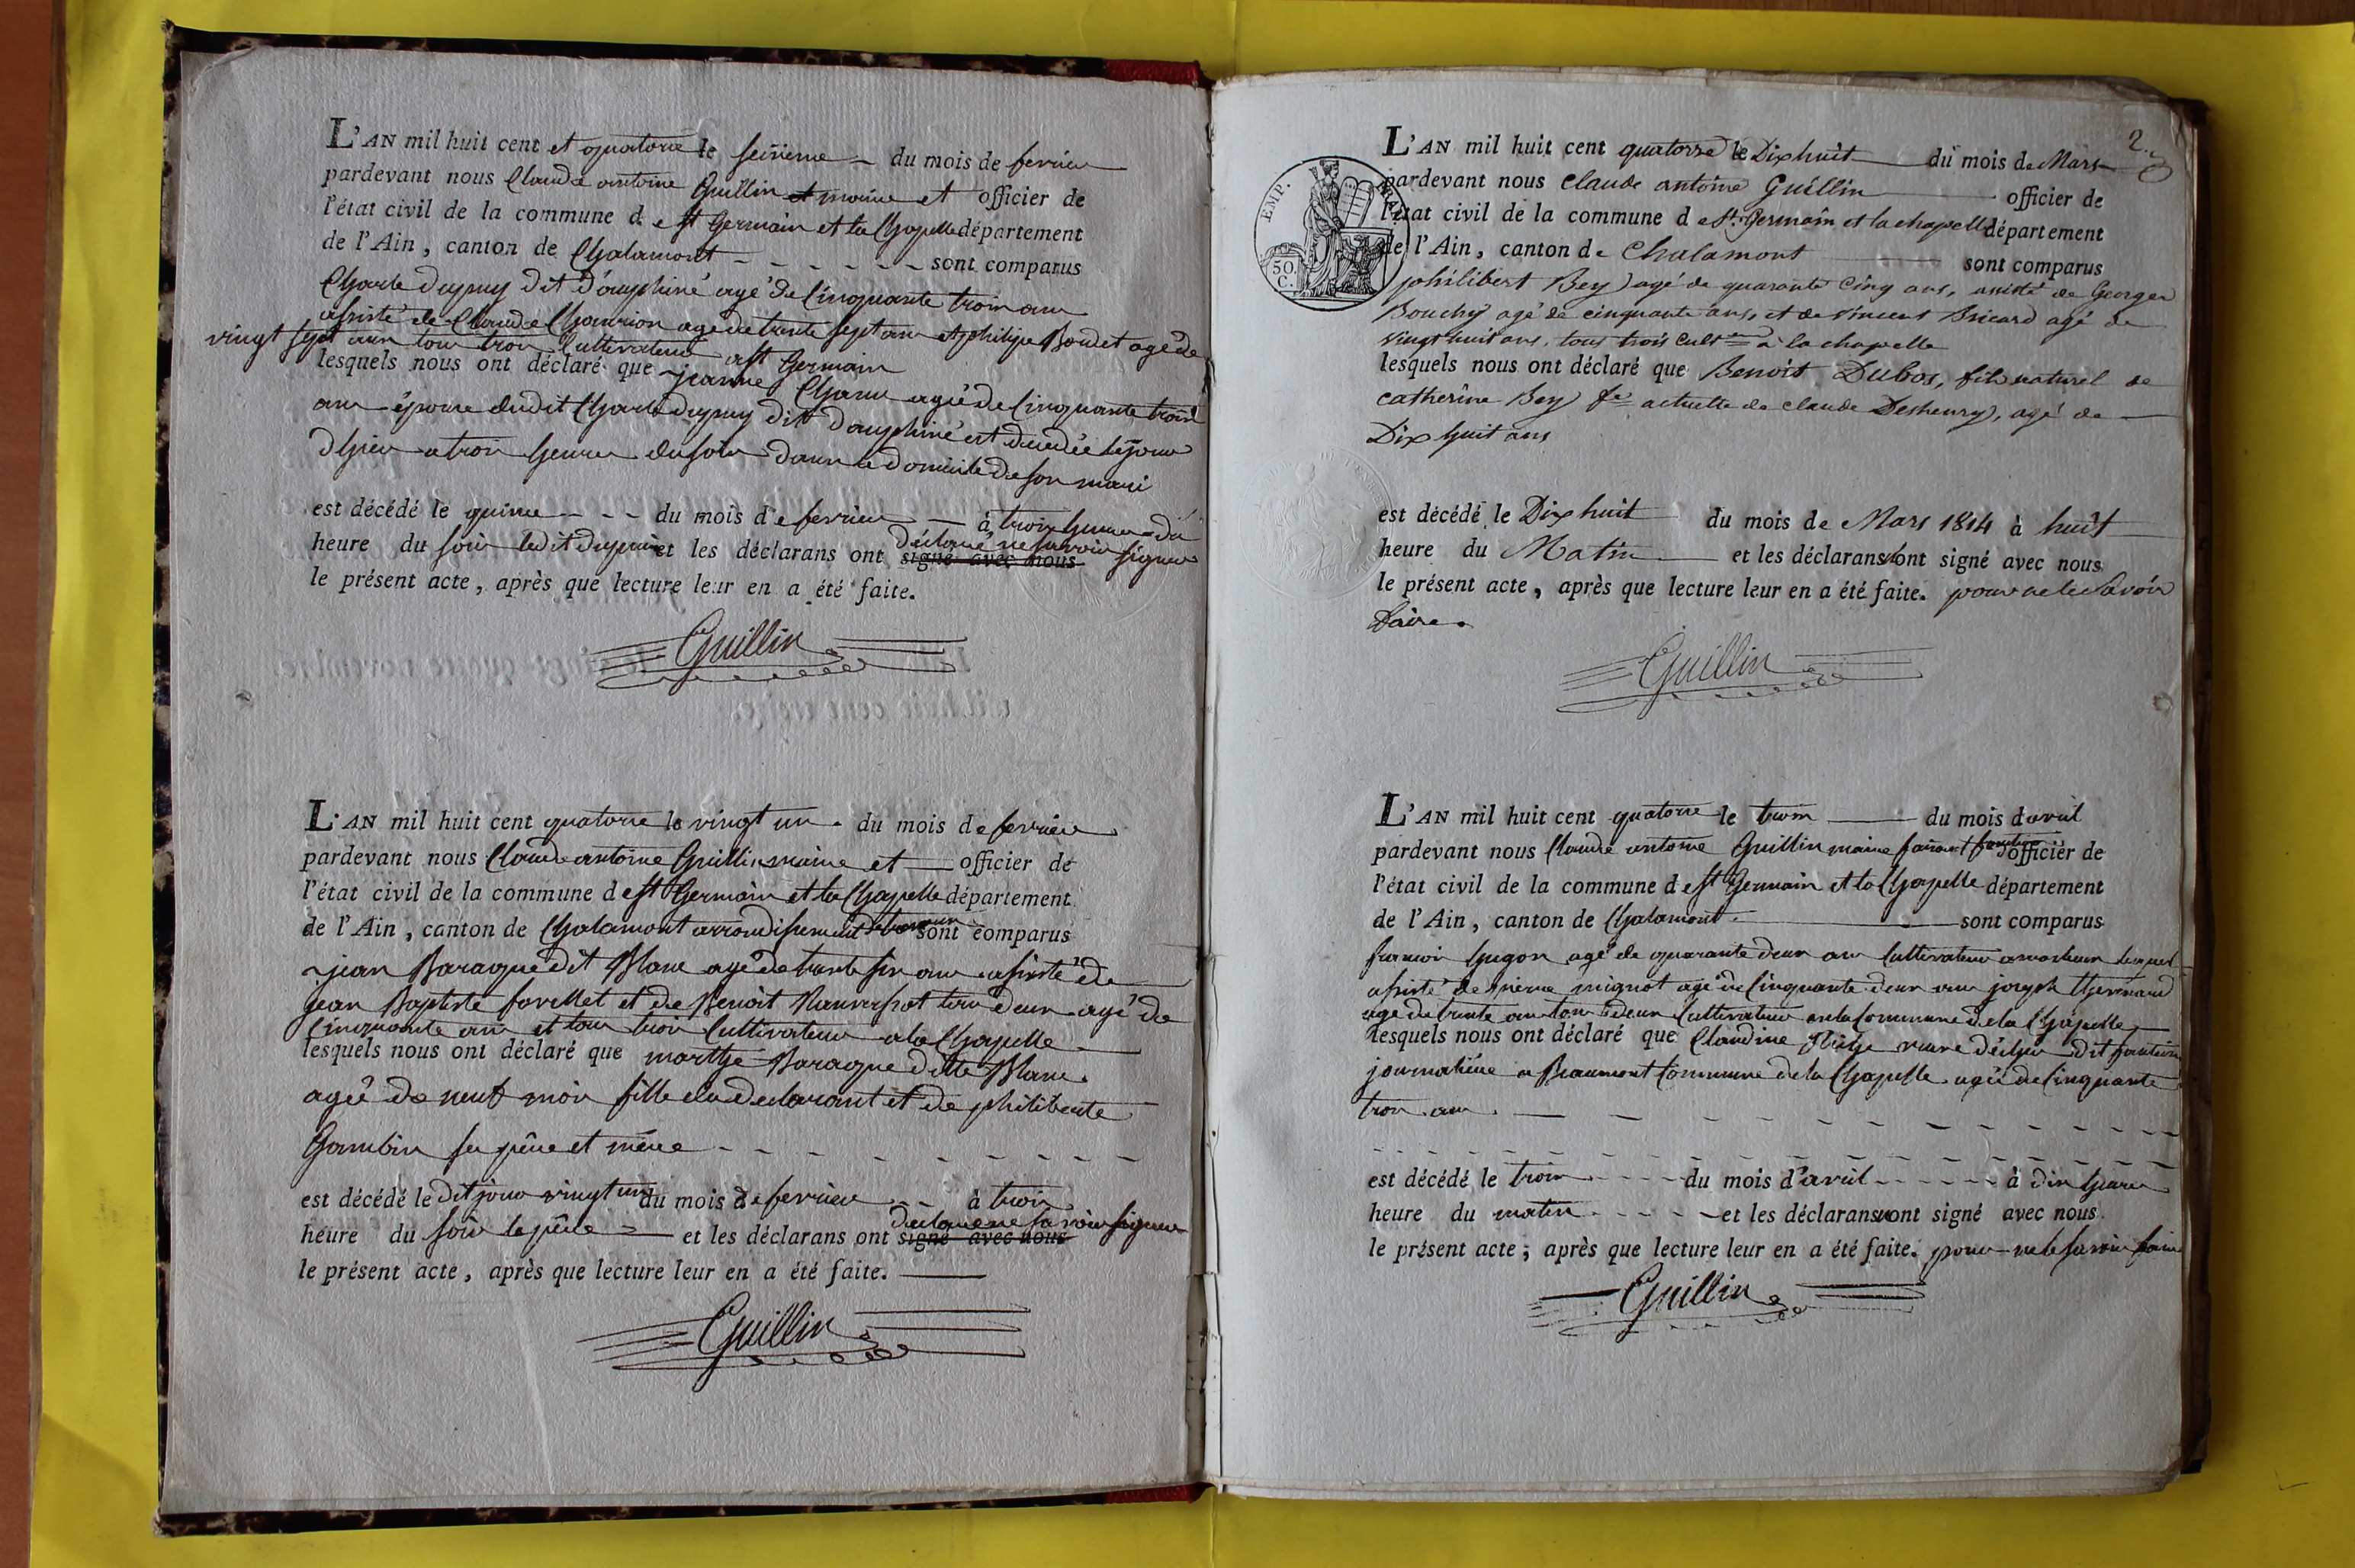 L'AN mil huit cent et quatorze le seizieme du mois de fevrier
pardevant nous Claude antoine Guillin maire et officier de
l'état civil de la commune de St Germain et la Chapelle département
de l'Ain, canton de Chalamont sont comparus
Charle dupuy dit Dauphiné agé de Cinquante trois ans
assisté de Claude Chanrion agé de trente sept ans et philipe Boudet agé de
vingt sept ans tous trois Cultivateurs a St Germain
lesquels nous ont déclaré que jeanne Chanu agée de Cinquante trois
ans épouse dudit Charle dupuy dit Dauphiné est decedée le jour
d'hier a trois heures du soir dans le domicile de son mari
est décédé le quinze du mois de fevrier à trois heures du
heure du soir ledit dupuy et les déclarans ont signé avec nous declaré ne savoir signer
le présent acte, après que lecture leur en a été faite.
Guillin
L'AN mil huit cent quatorze le vingt un du mois de fevrier
pardevant nous Claude antoine Guillin maire et officier de
l'état civil de la commune de St Germain et la Chapelle département
de l'Ain, canton de Chalamont arrondissement de trevoux sont comparus
jean Baraque dit Blanc agé de trente six ans assisté de
jean Baptiste forellet et de Benoit tous deux agé de
Cinquante ans et tous trois Cultivateurs a la Chapelle
lesquels nous ont déclaré que marthe Baraque ditte Blanc
agée de neuf mois fille du declarant et de philiberte
Gambin ses père et mère
est décédé le dit jour vingt un du mois de fevrier à trois
heure du soir le père et les déclarans ont signé avec nous declaré ne savoir signer
le présent acte, après que lecture leur en a été faite.
Guillin
2.
EMP.
50.
C.
L'AN mil huit cent quatorze le Dix huit du mois de Mars
pardevant nous Claude antoine Guillin officier de
l'état civil de la commune de St. Germain et la chapelle département
de l'Ain, canton de Chalamont sont comparus
philibert Bey agé de quarante cinq ans, assisté de Georges
Bouchy agé de cinquante ans, et de Vincent Bricard agé de
vingt huit ans, tous trois cult. à la chapelle
lesquels nous ont déclaré que Benoit Dubos, fils naturel de
catherine Bey fe actuelle de claude Desheury, agé de
Dix huit ans
est décédé le Dix huit du mois de Mars 1814 à huit
heure du Matin et les déclarans n'ont signé avec nous
le présent acte, après que lecture leur en a été faite. pour ne le savoir
faire.
Guillin
L'AN mil huit cent quatorze le trois du mois d'avril
pardevant nous Claude antoine Guillin maire faisant fonction officier de
l'état civil de la commune de St Germain et la Chapelle département
de l'Ain, canton de Chalamont sont comparus
francois hugon agé de quarante deux ans Cultivateur lequel
assisté de pierre mignot agé de Cinquante deux ans joseph thermand
agé de trente ans tous deux Cultivateurs en la Commune de la Chapelle
lesquels nous ont déclaré que Claudine veuve dit
journalière a Beaumont Commune de la Chapelle agée de Cinquante
trois ans
est décédé le trois du mois d'avril à dix heures
heure du matin et les déclarans n'ont signé avec nous
le présent acte, après que lecture leur en a été faite. pour ne le savoir faire
Guillin